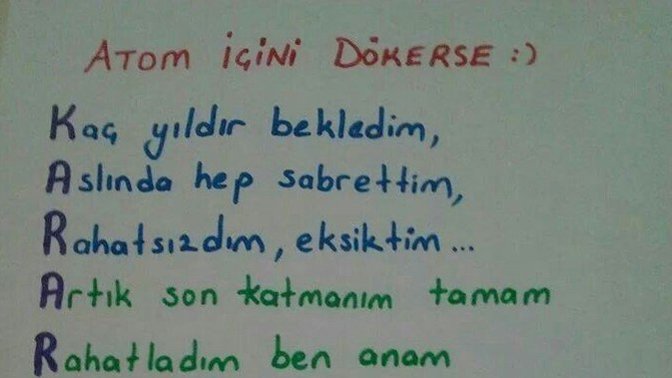 ATOM İÇİNİ DÖKERSE :)
Kaç yıldır bekledim,
Aslında hep sabrettim,
Rahatsızdım, eksiktim...
Artık son katmanım tamam
Rahatladım ben anam